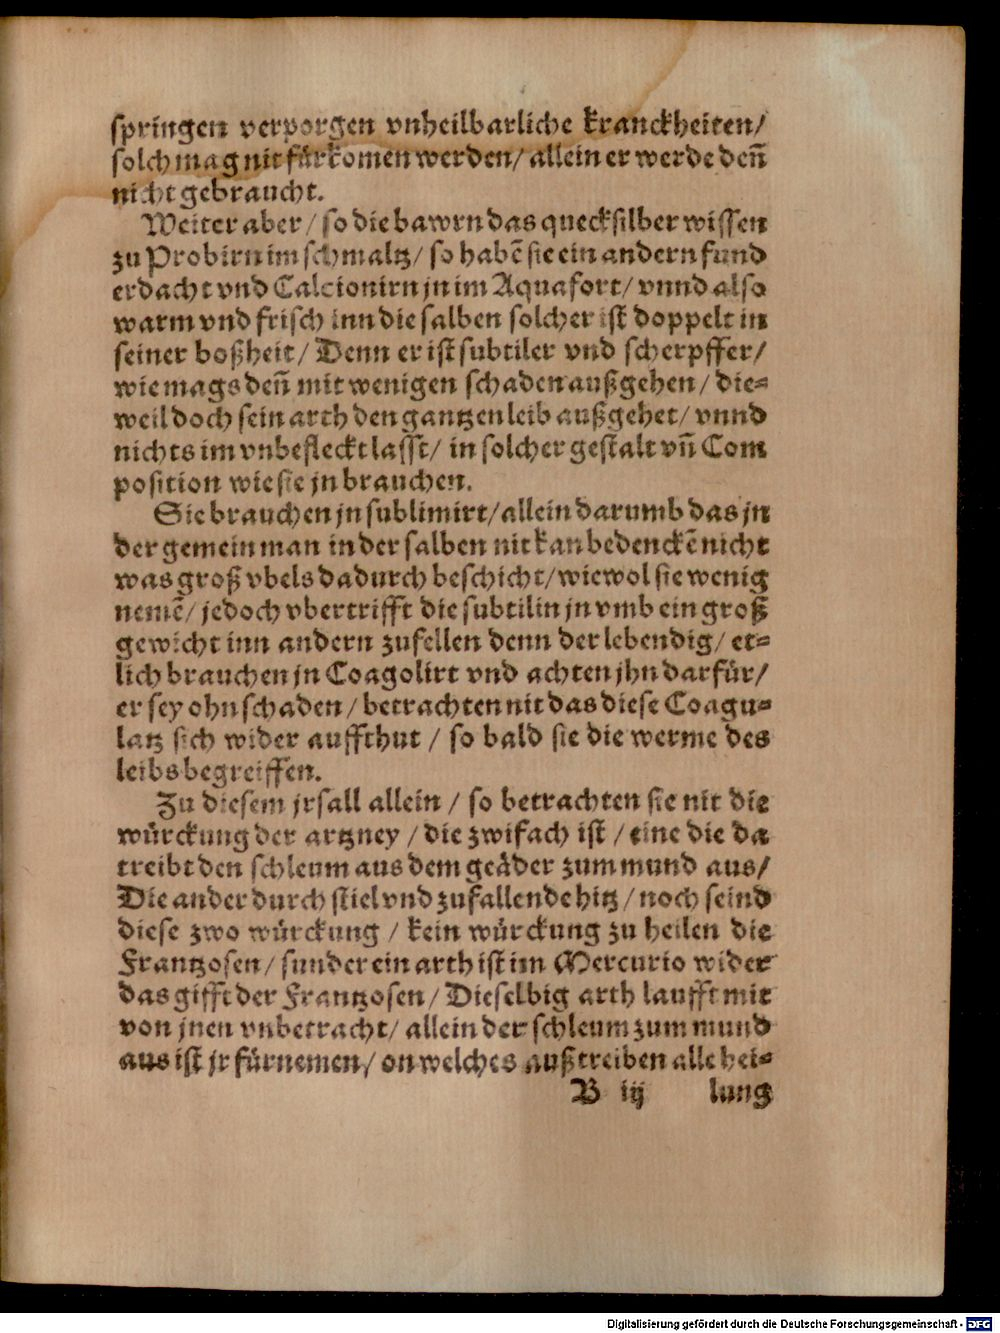 springen verporgen vnheilbarliche kranckheiten/
solch mag nit fürkomen werden/ allein er werde deñ
nicht gebraucht.
Weiter aber/ so die bawrn das quecksilber wissen
zu Probirn im schmaltz/ so habẽ sie ein andern fund
erdacht vnd Calcionirn jn im Aquafort/ vnnd also
warm vnd frisch inn die salben solcher ist doppelt in
seiner boßheit/ Denn er ist subtiler vnd scherpffer/
wie mags deñ mit wenigen schaden außgehen/ die⸗
weil doch sein arth den gantzen leib außgehet/ vnnd
nichts im vnbefleckt lasst/ in solcher gestalt vñ Com
position wie sie jn brauchen.
Sie brauchen jn sublimirt/ allein darumb das jn
der gemein man in der salben nit kan bedenckẽ nicht
was groß vbels dadurch beschicht/ wiewol sie wenig
nemẽ/ jedoch vbertrifft die subtilin jn vmb ein groß
gewicht inn andern zufellen denn der lebendig/ et⸗
lich brauchen jn Coagolirt vnd achten jhn darfür/
er sey ohn schaden/ betrachten nit das diese Coagu⸗
latz sich wider auffthut/ so bald sie die werme des
leibs begreiffen.
Zu diesem jrsall allein/ so betrachten sie nit die
würckung der artzney/ die zwifach ist/ eine die da
treibt den schleum aus dem geäder zum mund aus/
Die ander durch stiel vnd zufallende hitz/ noch seind
diese zwo würckung/ kein würckung zu heilen die
Frantzosen/ sunder ein arth ist im Mercurio wider
das gifft der Frantzosen/ Dieselbig arth laufft mit
von jnen vnbetracht/ allein der schleum zum mund
aus ist jr fürnemen/ on welches außtreiben alle hei⸗
B iij lung
Digitalisierung gefördert durch die Deutsche Forschungsgemeinschaft - DFG